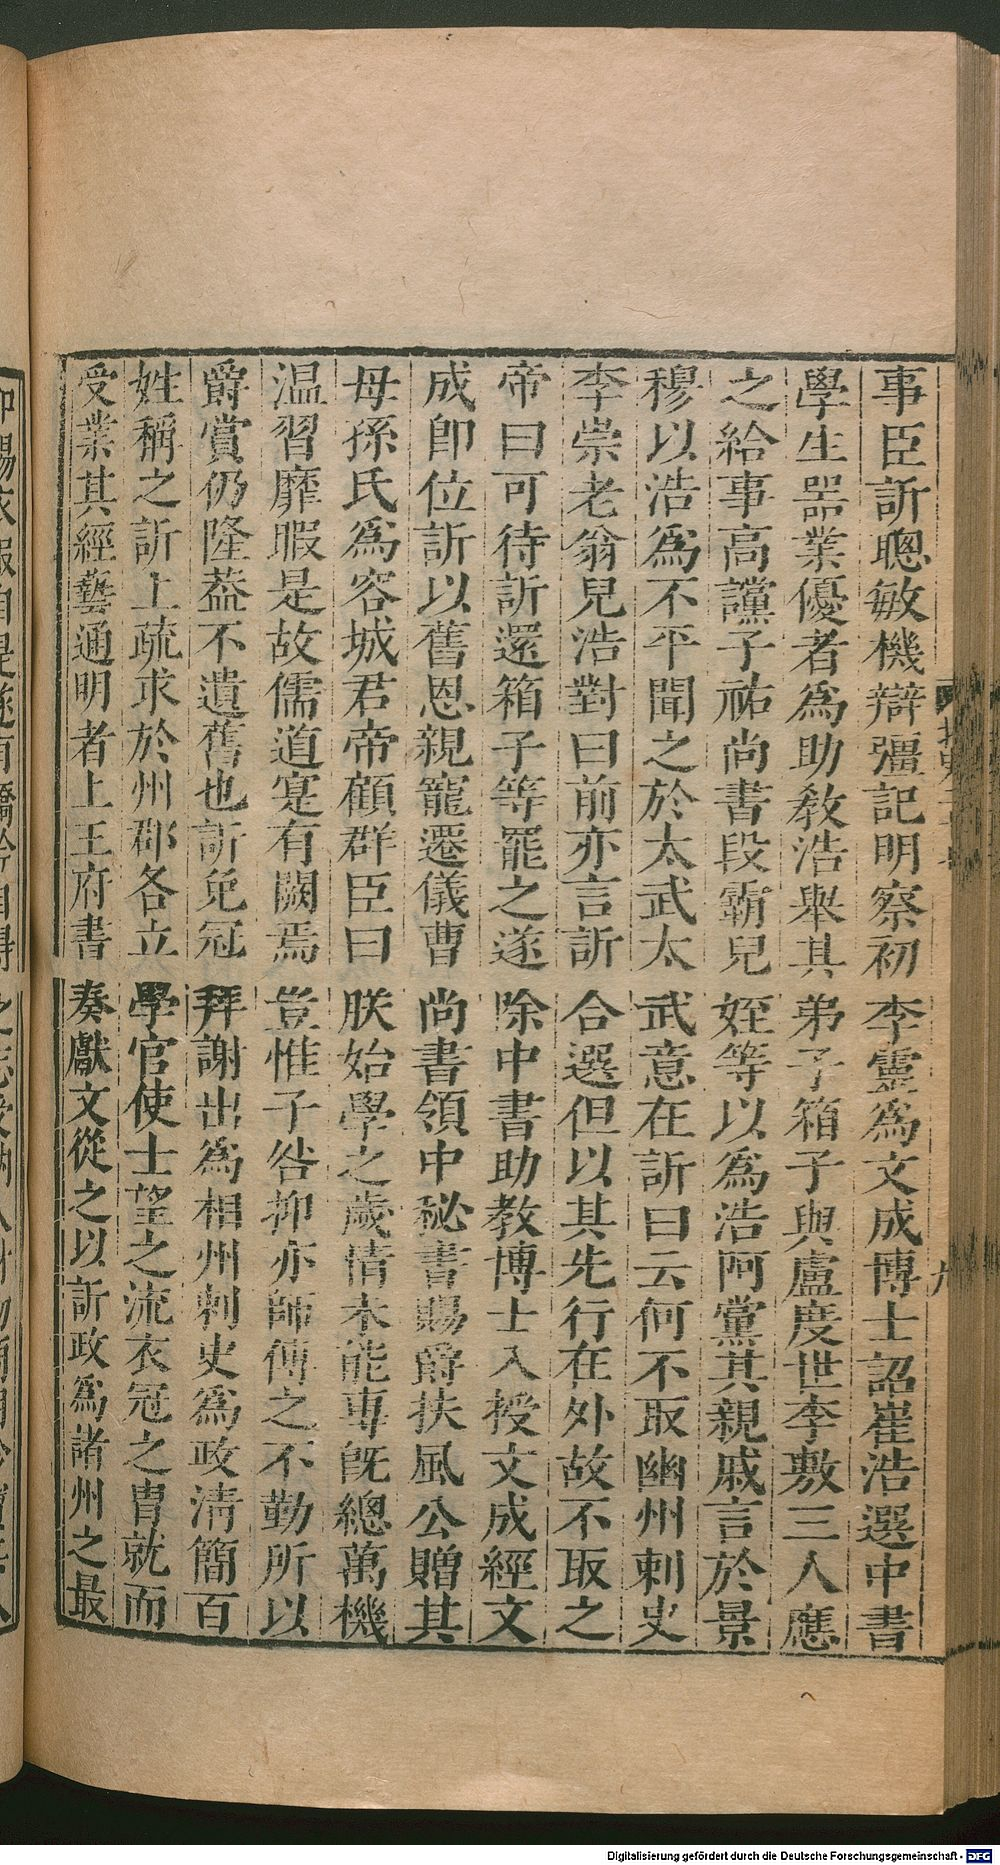 事臣訢聰敏機辯彊記明察初李靈爲文成博士詔崔浩選中書
學生器業優者爲助教浩舉其弟子箱子與盧度世李敷三人應
之給事高讜子祐尚書段霸兒姪等以爲浩阿黨其親戚言於景
穆以浩爲不平聞之於太武太武意在訢曰云何不取幽州刺史
李崇老翁兒浩對曰前亦言訢合選但以其先行在外故不取之
帝曰可待訢還箱子等罷之遂除中書助教博士入授文成經文
成卽位訢以舊恩親寵遷儀曹尚書領中秘書賜爵扶風公贈其
母孫氏爲容城君帝顧群臣曰朕始學之歲情未能專旣總萬機
温習靡暇是故儒道寔有闕焉豈惟予咎抑亦師傅之不勤所以
爵賞仍隆葢不遺舊也訢免冠拜謝出爲相州刺史爲政清簡百
姓稱之訢上疏求於州郡各立學官使士望之流衣冠之胄就而
受業其經藝通明者上王府書奏獻文從之以訢政爲諸州之最
Digitalisierung gefördert durch die Deutsche Forschungsgemeinschaft - DFG